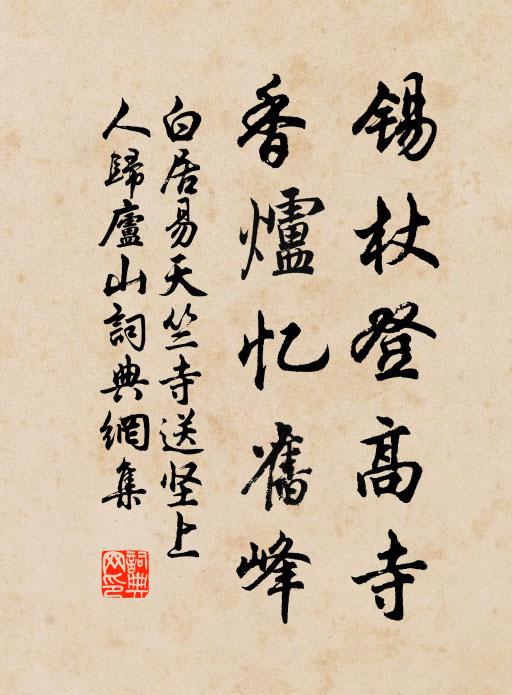 锡杖登高寺
香爐忆舊峰
白居易天竺寺送坚上
人歸廬山詞典網集
詞典网印